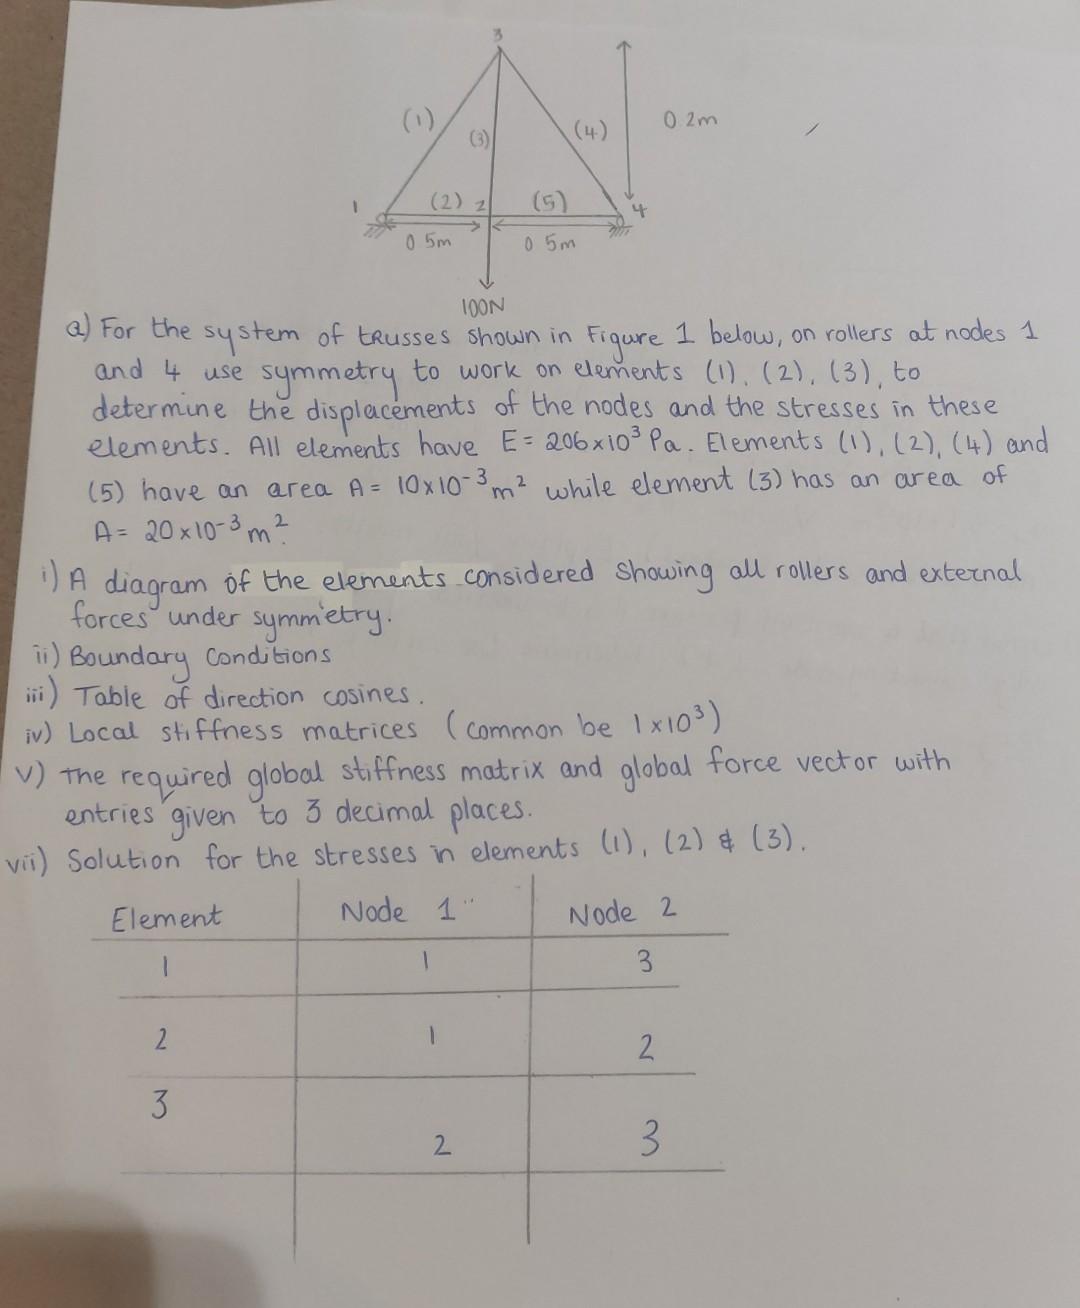 3
(1)
(3)
(4)
0.2m
1
(2)
2
(5)
4
0.5m
0.5m
100N
a) For the system of trusses shown in Figure 1 below, on rollers at nodes 1
and 4 use symmetry to work on elements (1), (2), (3), to
determine the displacements of the nodes and the stresses in these
elements. All elements have E = 206x10³ Pa. Elements (1), (2), (4) and
(5) have an area A = 10x10⁻³m² while element (3) has an area of
A = 20x10⁻³m².
i) A diagram of the elements considered showing all rollers and external
forces under symmetry.
ii) Boundary Conditions
iii) Table of direction cosines.
iv) Local stiffness matrices (common be 1x10³)
v) The required global stiffness matrix and global force vector with
entries given to 3 decimal places.
vii) Solution for the stresses in elements (1), (2) & (3).
Element Node 1 Node 2
1 1 3
2 1 2
3 2 3